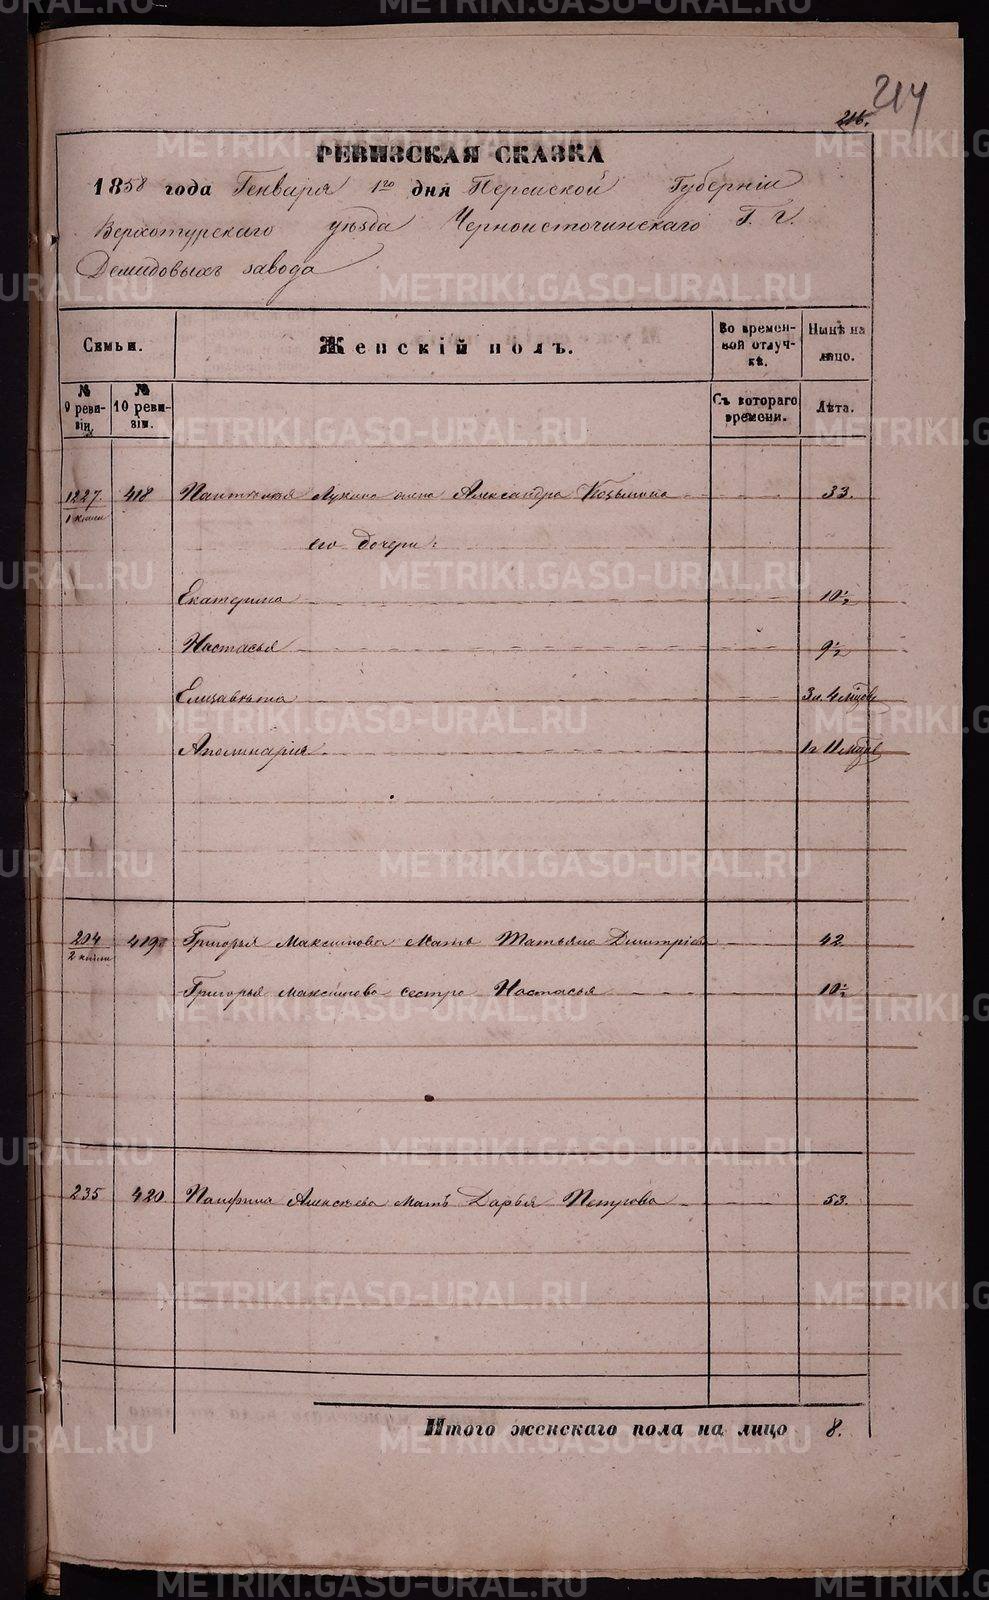 214
216.
РЕВИЗСКАЯ СКАЗКА
1858 года Генваря 1го дня Пермской Губернiи
Верхотурскаго уѣзда Черноисточинскаго Г. г.
Демидовыхъ завода
Семьи.
Женскiй полъ.
Во времен-
ной отлуч-
кѣ.
Нынѣ на
лицо.
№
9 реви-
зiи.
№
10 реви-
зiи.
Съ котораго
времени.
Лѣта.
1227. 418 Лукина жена Александра Козьмина 33.
1 книги
его дочери:
Екатерина 10 ½
Настасья 9 ½
Елизавѣта 3 л. 4 мѣсяц
Аполинарiя 1 г 11 мѣсяц
204 419 Григорья Максимова мать Татьяна Дмитрiева 42
2 книги
Григорья Максимова сестра Настасья 10 ½
235 420 Памфила Алексѣева мать Дарья Петрова 53.
Итого женскаго пола на лицо 8.
METRIKI.GASO-URAL.RU